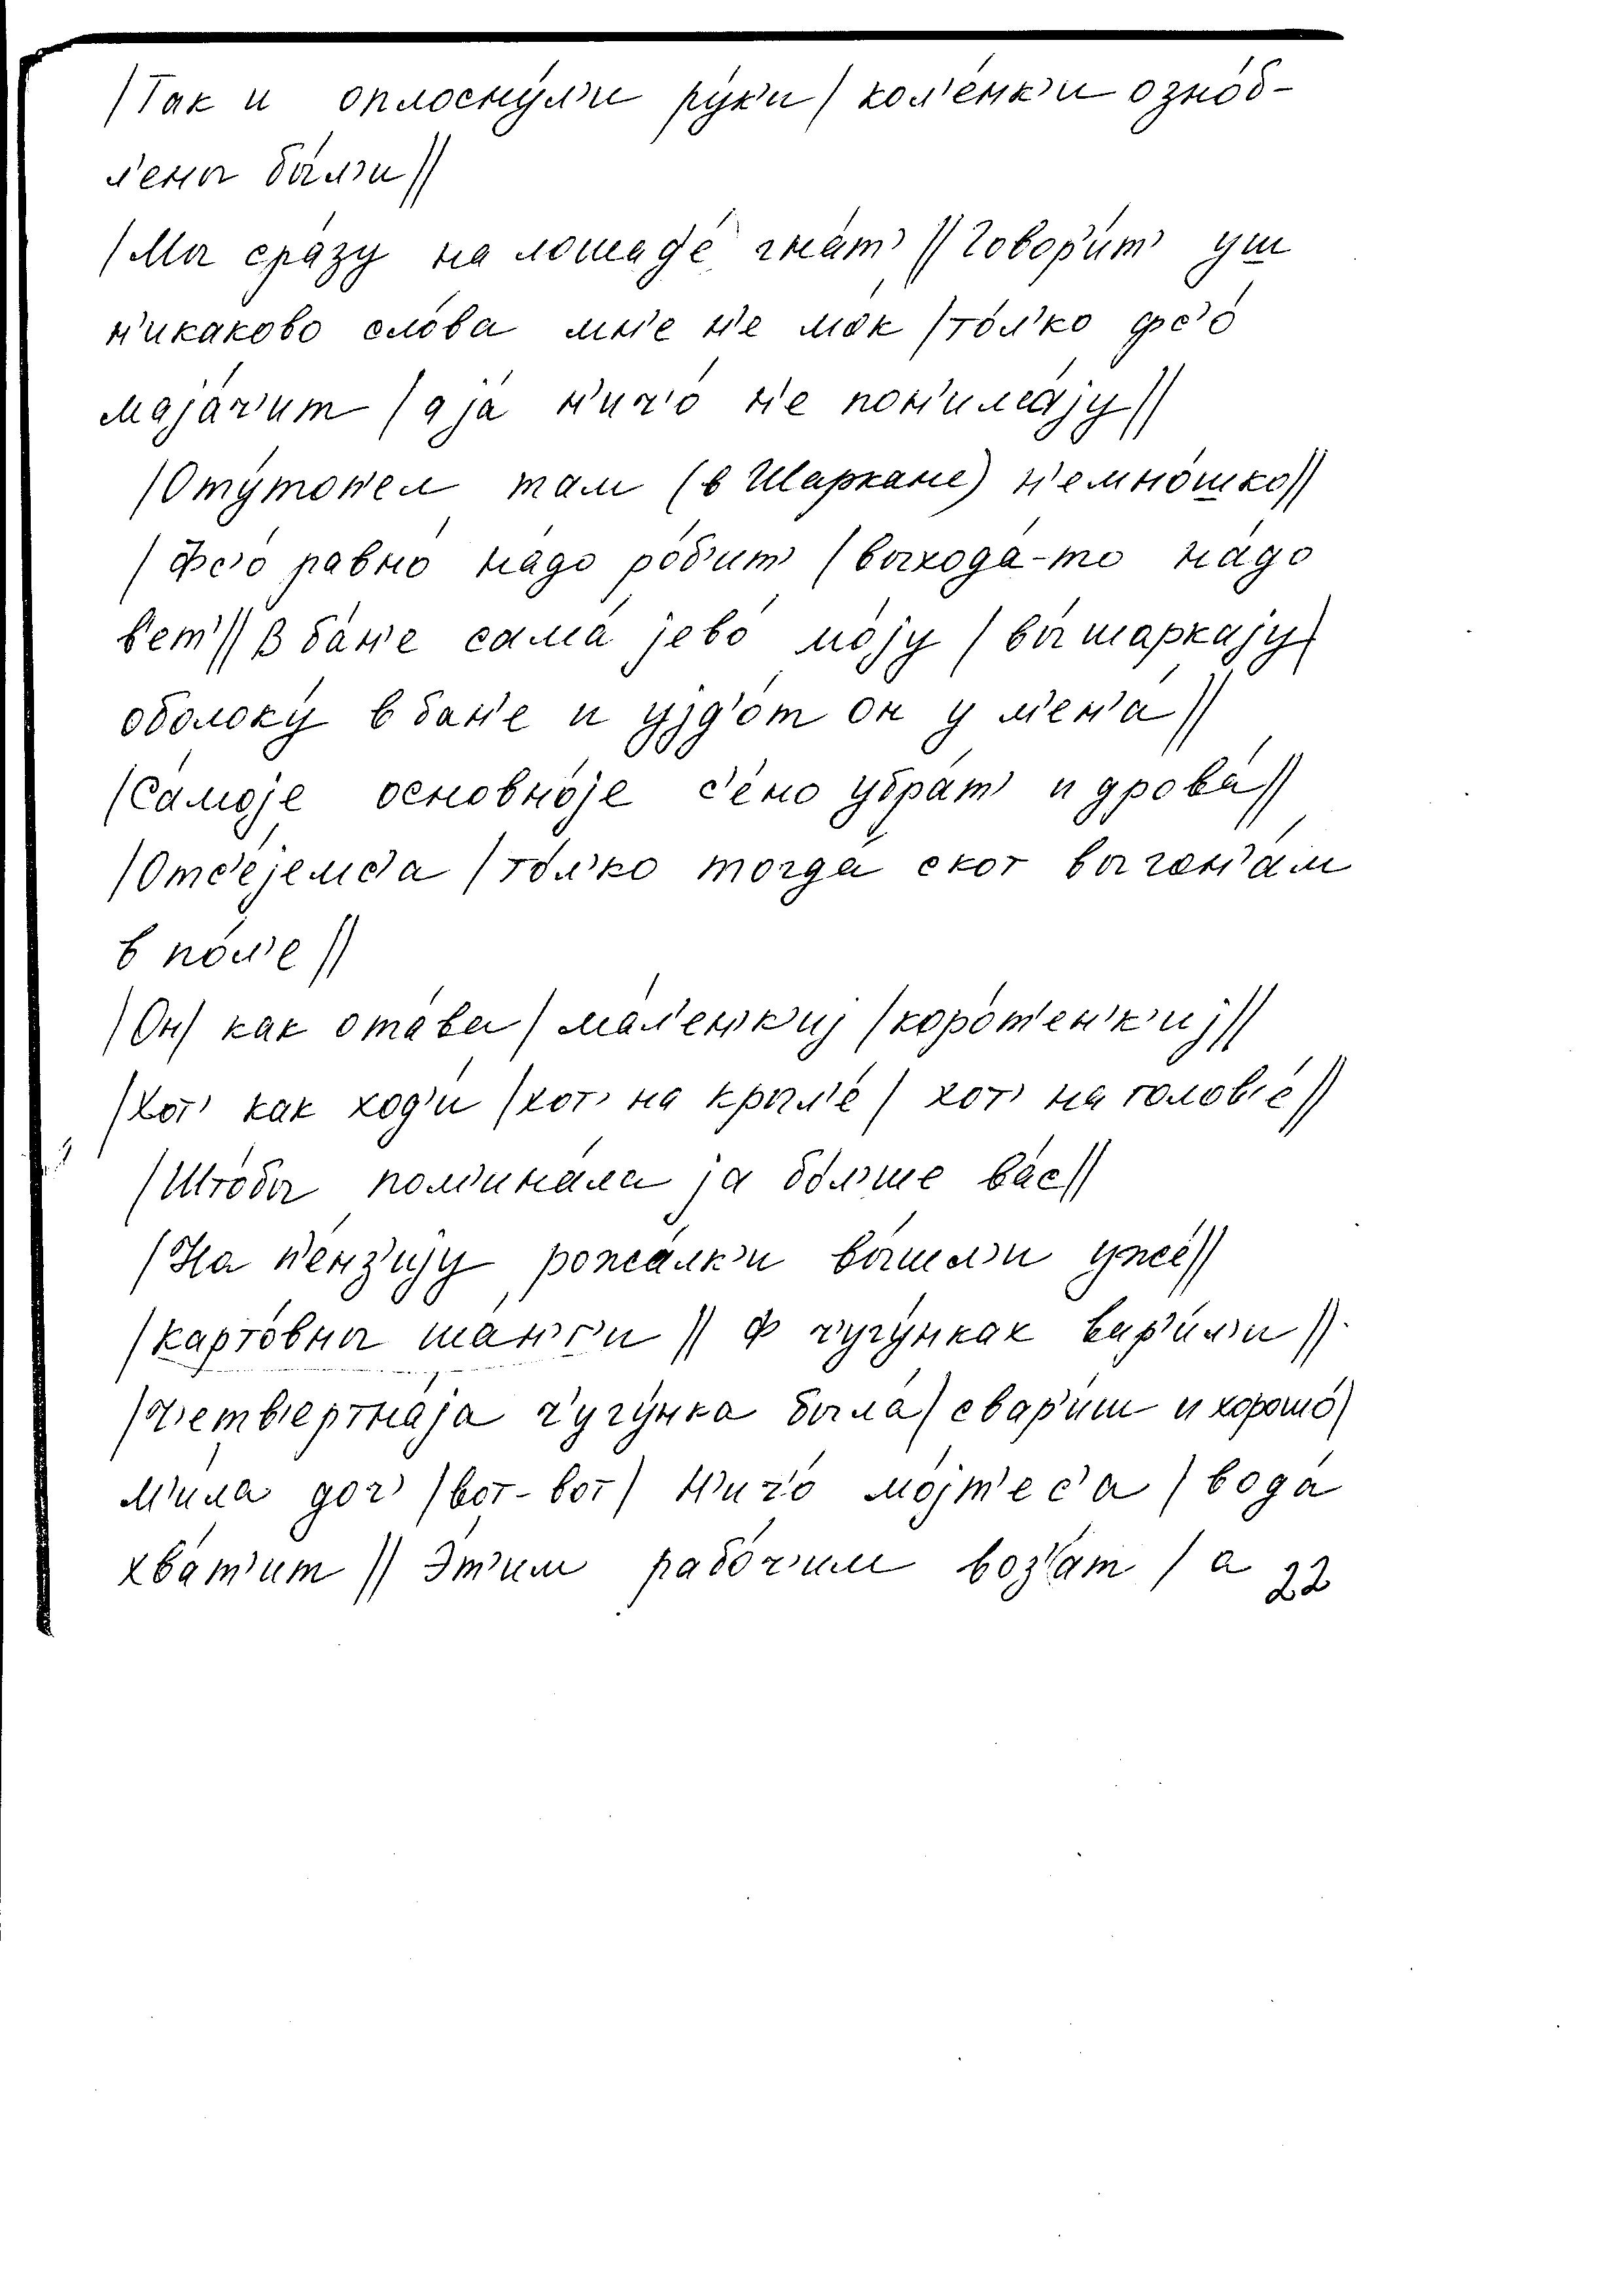 /Так и оплоснýл'и рýк'и/ кол'éнк'иознóб-
л'ены бы́л'и//
/Мы срáзу на лошад'é гнáт'//Говор'и́т' уш
н'икаково слóва мн'е н'е мóк /тóл'ко фс'ó
мајáч'ит /а јá н'ич'ó н'е пон'имáју//
/Отýтов'ел там (в Шаркане) н'емнóшко//
/Фс'ó равнó нáдо рóб'ит' /выхода́-то нáдо
в'ет'//В бáн'е самá јевó мóју /вы́шаркају/
оболокý в бан'е и ујд'óт он у м'ен'á//
/Сáмоје основнóје с'éно убрáт' и дровá//
/Отс'éјемс'а /тóл'ко тогдá скот выгон'áм
в пóл'е//
/Он/ как отáва/ мáл'ен'к'иј /корóт'ен'к'иј//
/Хот' как ход'и́ /хот' на крыл'é/ хот' на голов'é//
/Штóбы пом'инáла ја бóл'ше вáс//
/На п'éнз'ију рожáлк'и вы́шл'и ужé//
/картóвны шáн'г'и// Ф ч'угýнках вар'и́л'и//
/Ч'етв'ертнáја ч'угýнка былá/свар'и́ш и хорошó/
М'и́ла доч' /вот-вот/ Н'ич'ó мóјт'ес'а /водá
хвáт'ит// Э́т'им рабóч'им воз'áт /а
22